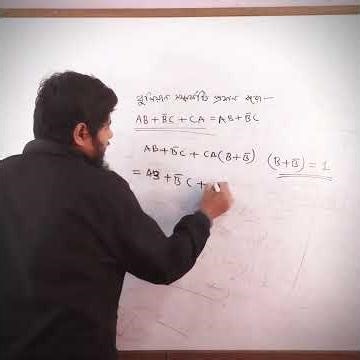 বুলিয়ান সমীকরণটি প্রমাণ কর:—
AB + B̅C + CA = AB + B̅C
AB + B̅C + CA (B + B̅) (B + B̅) = 1
= AB + B̅C +